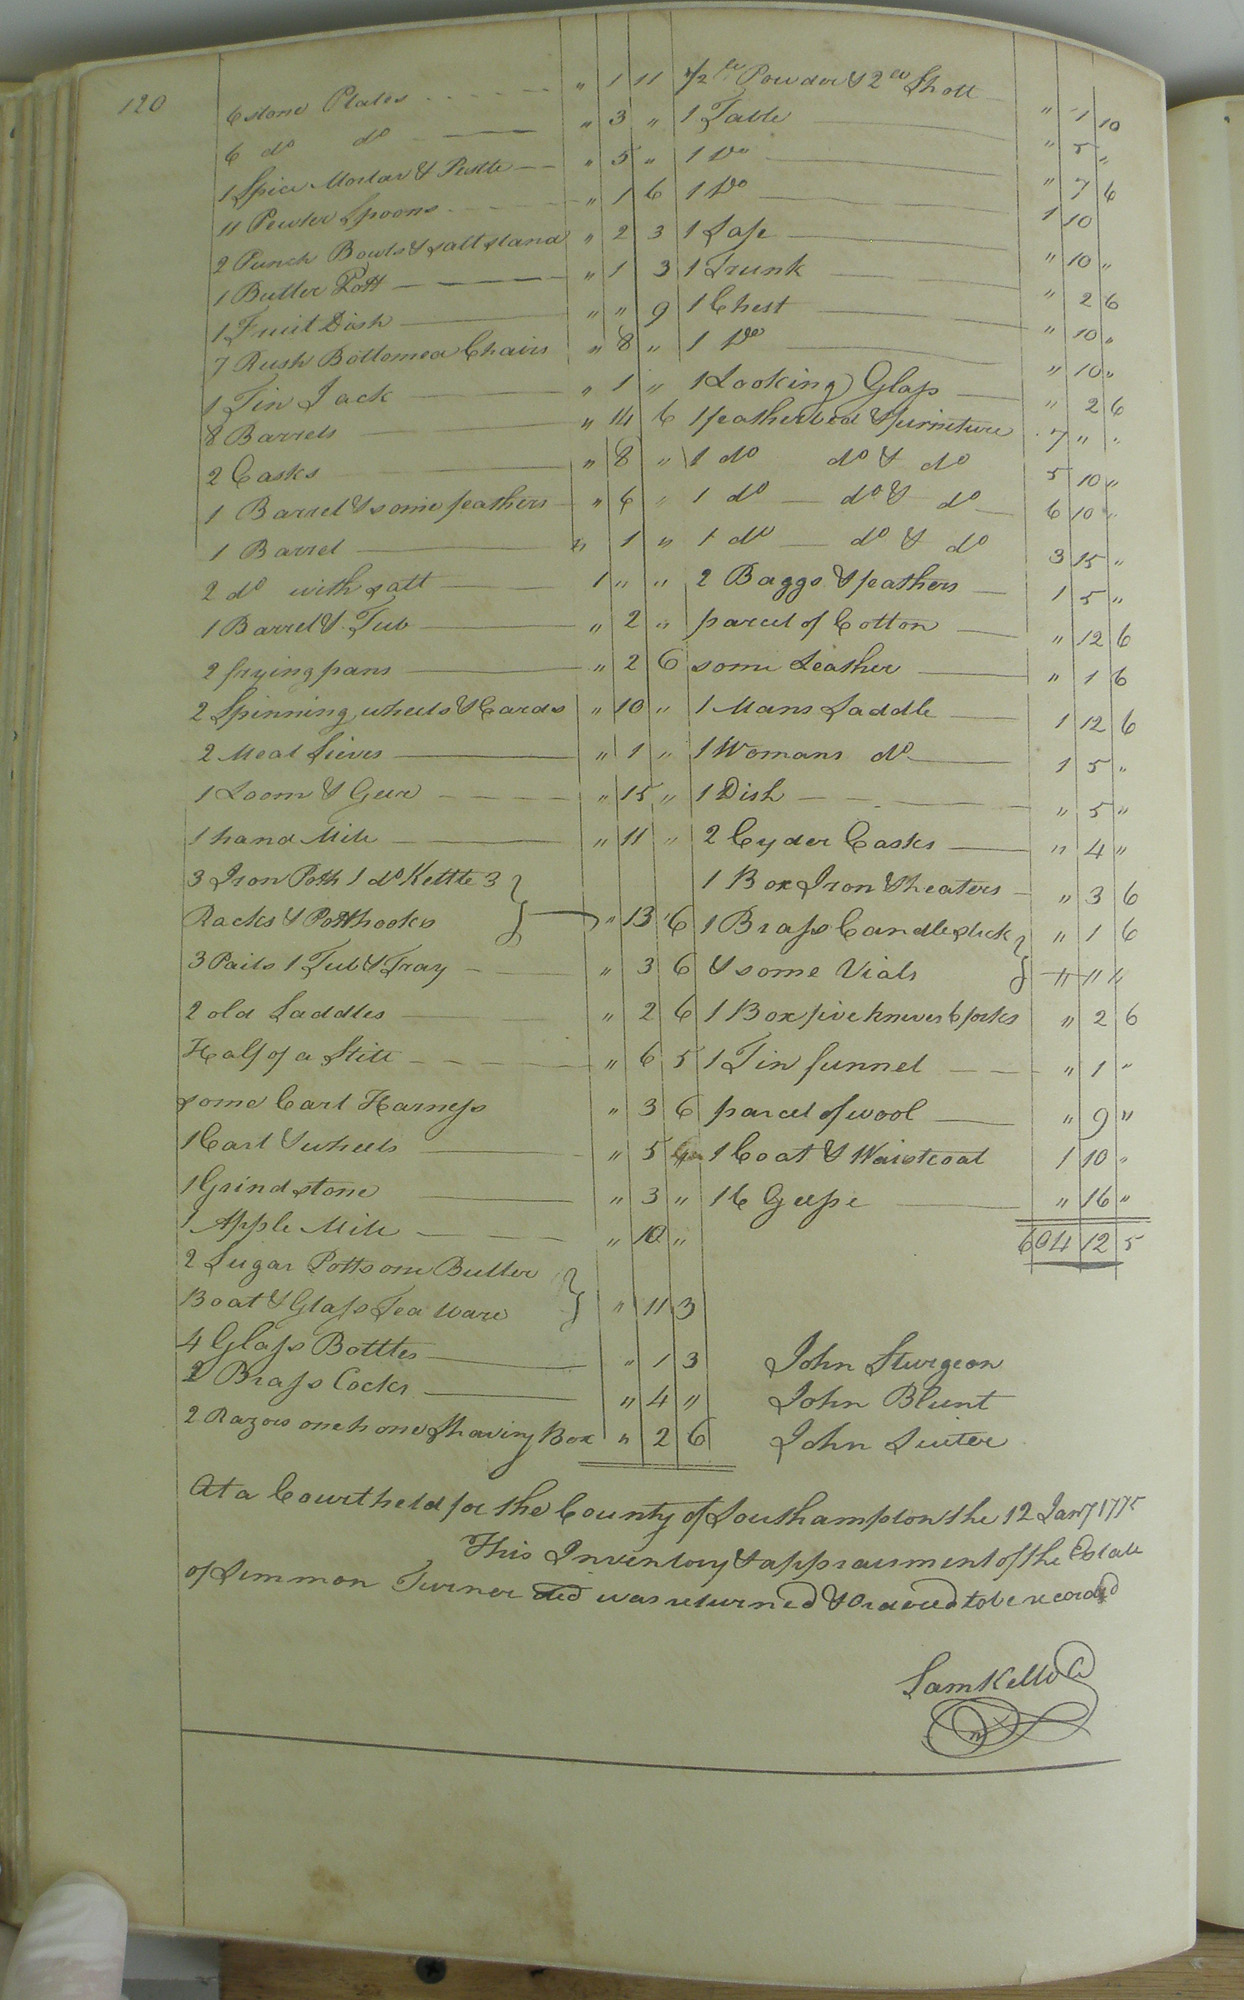 120
6 stone Plates " 1 11
6 do do " 3 "
1 Spice Mortar & Pestle " 5 "
11 Pewter Spoons " 1 6
2 Punch Bowls & salt stand " 2 3
1 Butter Pott " 1 3
1 Fruit Dish " " 9
7 Rush Bottomed Chairs " 8 "
1 Tin Jack " 1 "
8 Barrels " 14 6
2 Casks " 8 "
1 Barrel & some feathers " 6 "
1 Barrel " 1 "
2 do with salt 1 " "
1 Barrel & Tub " 2 "
2 frying pans " 2 6
2 Spinning wheels & Cards " 10 "
2 Meal Sieves " 1 "
1 Loom & Geer " 15 "
1 hand Mill " 11 "
3 Iron Potts 1 do Kettle 3
Racks & Potthooks " 13 6
3 Pails 1 Tub & Tray " 3 6
2 old Saddles " 2 6
Half of a Still " 6 5
some Cart Harness " 3 6
1 Cart & wheels " 5 "
1 Grindstone " 3 "
1 Apple Mill " 10 "
2 Sugar Potts one Butter
Boat & Glass Tea ware " 11 3
4 Glass Bottles " 1 3
2 Brass Cocks " 4 "
2 Razors one hone Shaving Box " 2 6
1/2 lb Powder & 2 lb Shott " 1 10
1 Table " 5 "
1 Do " 7 6
1 Do 1 10
1 Safe " 10 "
1 Trunk " 2 6
1 Chest " 10 "
1 Do " 10 "
1 Looking Glass " 2 6
1 featherbed & furniture 7 " "
1 do do & do 5 10 "
1 do do & do 6 10 "
1 do do & do 3 15 "
2 Baggs & feathers 1 5 "
parcel of Cotton " 12 6
some Leather " 1 6
1 Mans Saddle 1 12 6
1 Womans do 1 5 "
1 Dish " 5 "
2 Cyder Casks " 4 "
1 Box Iron & heaters " 3 6
1 Brass Candlestick " 1 6
& some Vials " 11 "
1 Box five knives 6 forks " 2 6
1 Tin funnel " 1 "
parcel of wool " 9 "
1 Coat & Waistcoat 1 10 "
16 Geese " 16 "
604 12 5
John Sturgeon
John Blunt
John Suiter
At a Court held for the County of Southampton the 12 Jany 1775
This Inventory & appraisment of the Estate
of Simmon Turner decd was returned & Ordered to be recorded
Sam Kello C